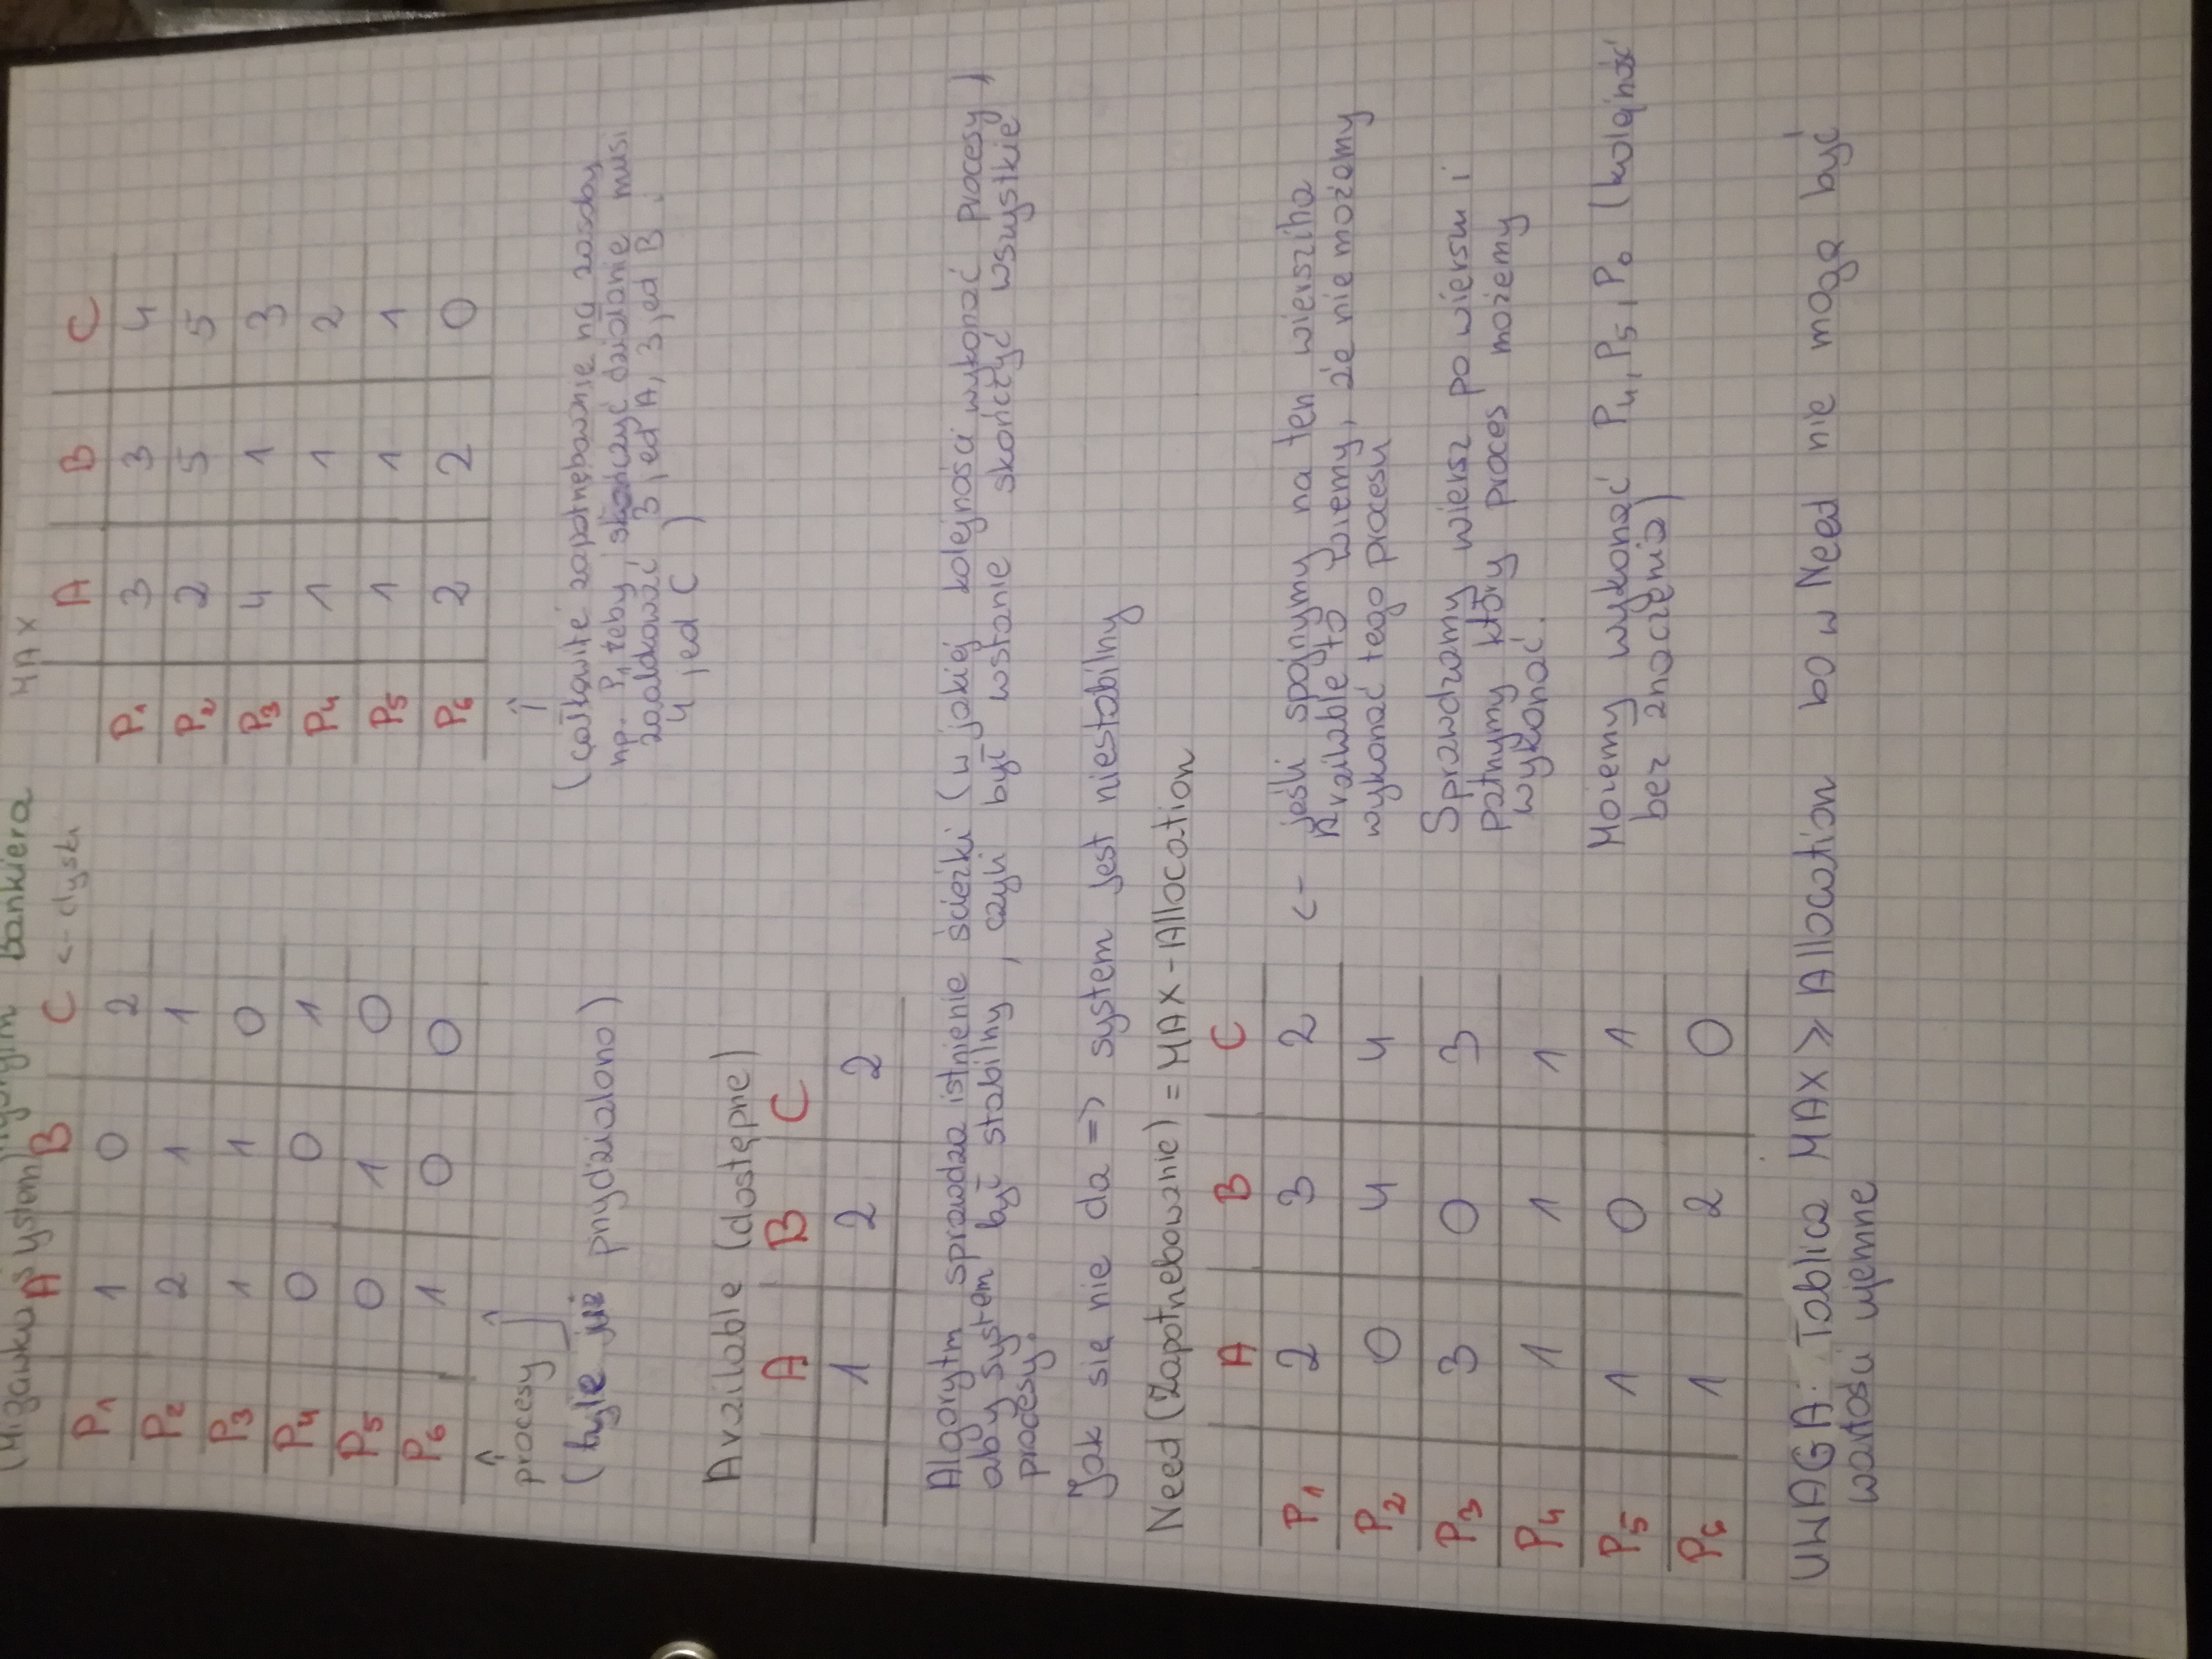 bankiera
(Migawka systemu)
A B C <- dysku
P1 1 0 2
P2 2 1 1
P3 1 1 0
P4 0 0 1
P5 0 1 0
P6 1 0 0
procesy
(byle już przydzielono)
MAX
A B C
P1 3 3 4
P2 2 5 5
P3 4 1 3
P4 1 1 2
P5 1 1 1
P6 2 2 0
(całkowite zapotrzebowanie na zasoby
np. P1 żeby skończyć działanie musi
zaalokować 3 jed A, 3 jed B,
4 jed C)
Available (dostępne)
A B C
1 2 2
Algorytm sprawdza istnienie ścieżki (w jakiej kolejności wykonać procesy)
aby system był stabilny, czyli być wstanie skończyć wszystkie
procesy.
Jak się nie da => system jest niestabilny
Need (Zapotrzebowanie) = MAX - Allocation
A B C
P1 2 3 2
P2 0 4 4
P3 3 0 3
P4 1 1 1
P5 1 0 1
P6 1 2 0
<- jeśli spojrzymy na ten wiersz i na
Available to wiemy, że nie możemy
wykonać tego procesu
Sprawdzamy wiersz po wierszu i
patrzymy który proces możemy
wykonać.
Możemy wykonać P4, P5, P6 (kolejność
bez znaczenia)
UWAGA: Tablica MAX ≥ Allocation bo w Need nie mogą być
wartości ujemne